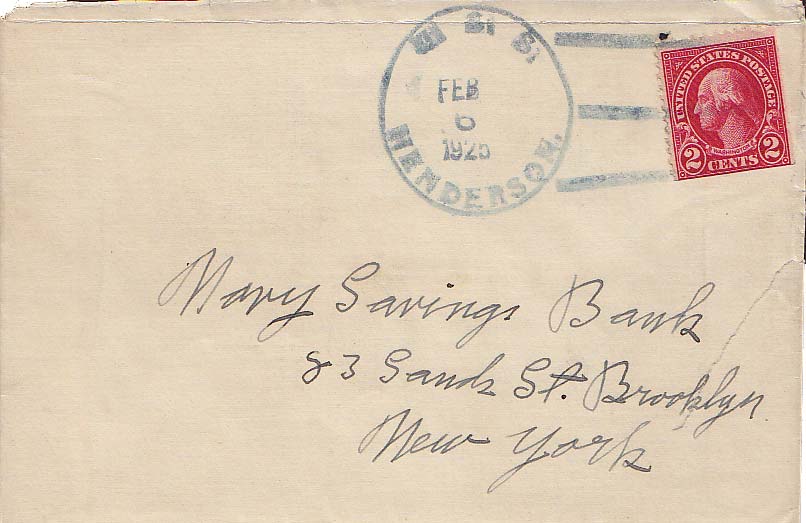 U. S. S.
FEB
6
1925
HENDERSON.
UNITED STATES POSTAGE
WASHINGTON
2 CENTS 2
Navy Savings Bank
83 Sands St. Brooklyn
New York